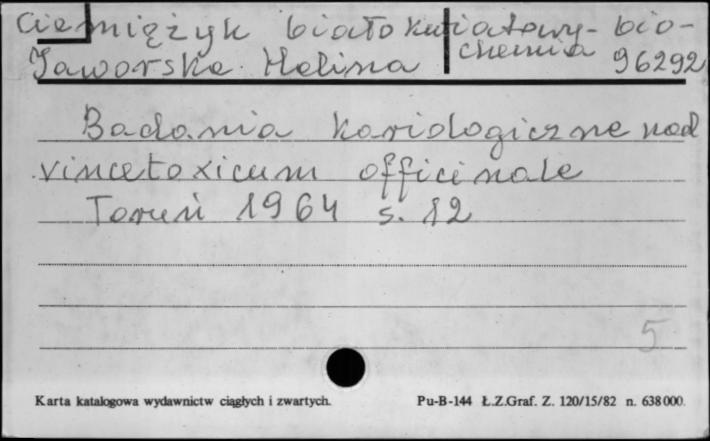 Ciemiężyk białokwiatowy - bio-
chemia
Jaworska Halina 96292
Badania kariologiczne nad
vincetoxicum officinale
Toruń 1964 s. 12
5
Karta katalogowa wydawnictw ciągłych i zwartych. Pu-B-144 Ł.Z.Graf. Z. 120/15/82 n. 638000.